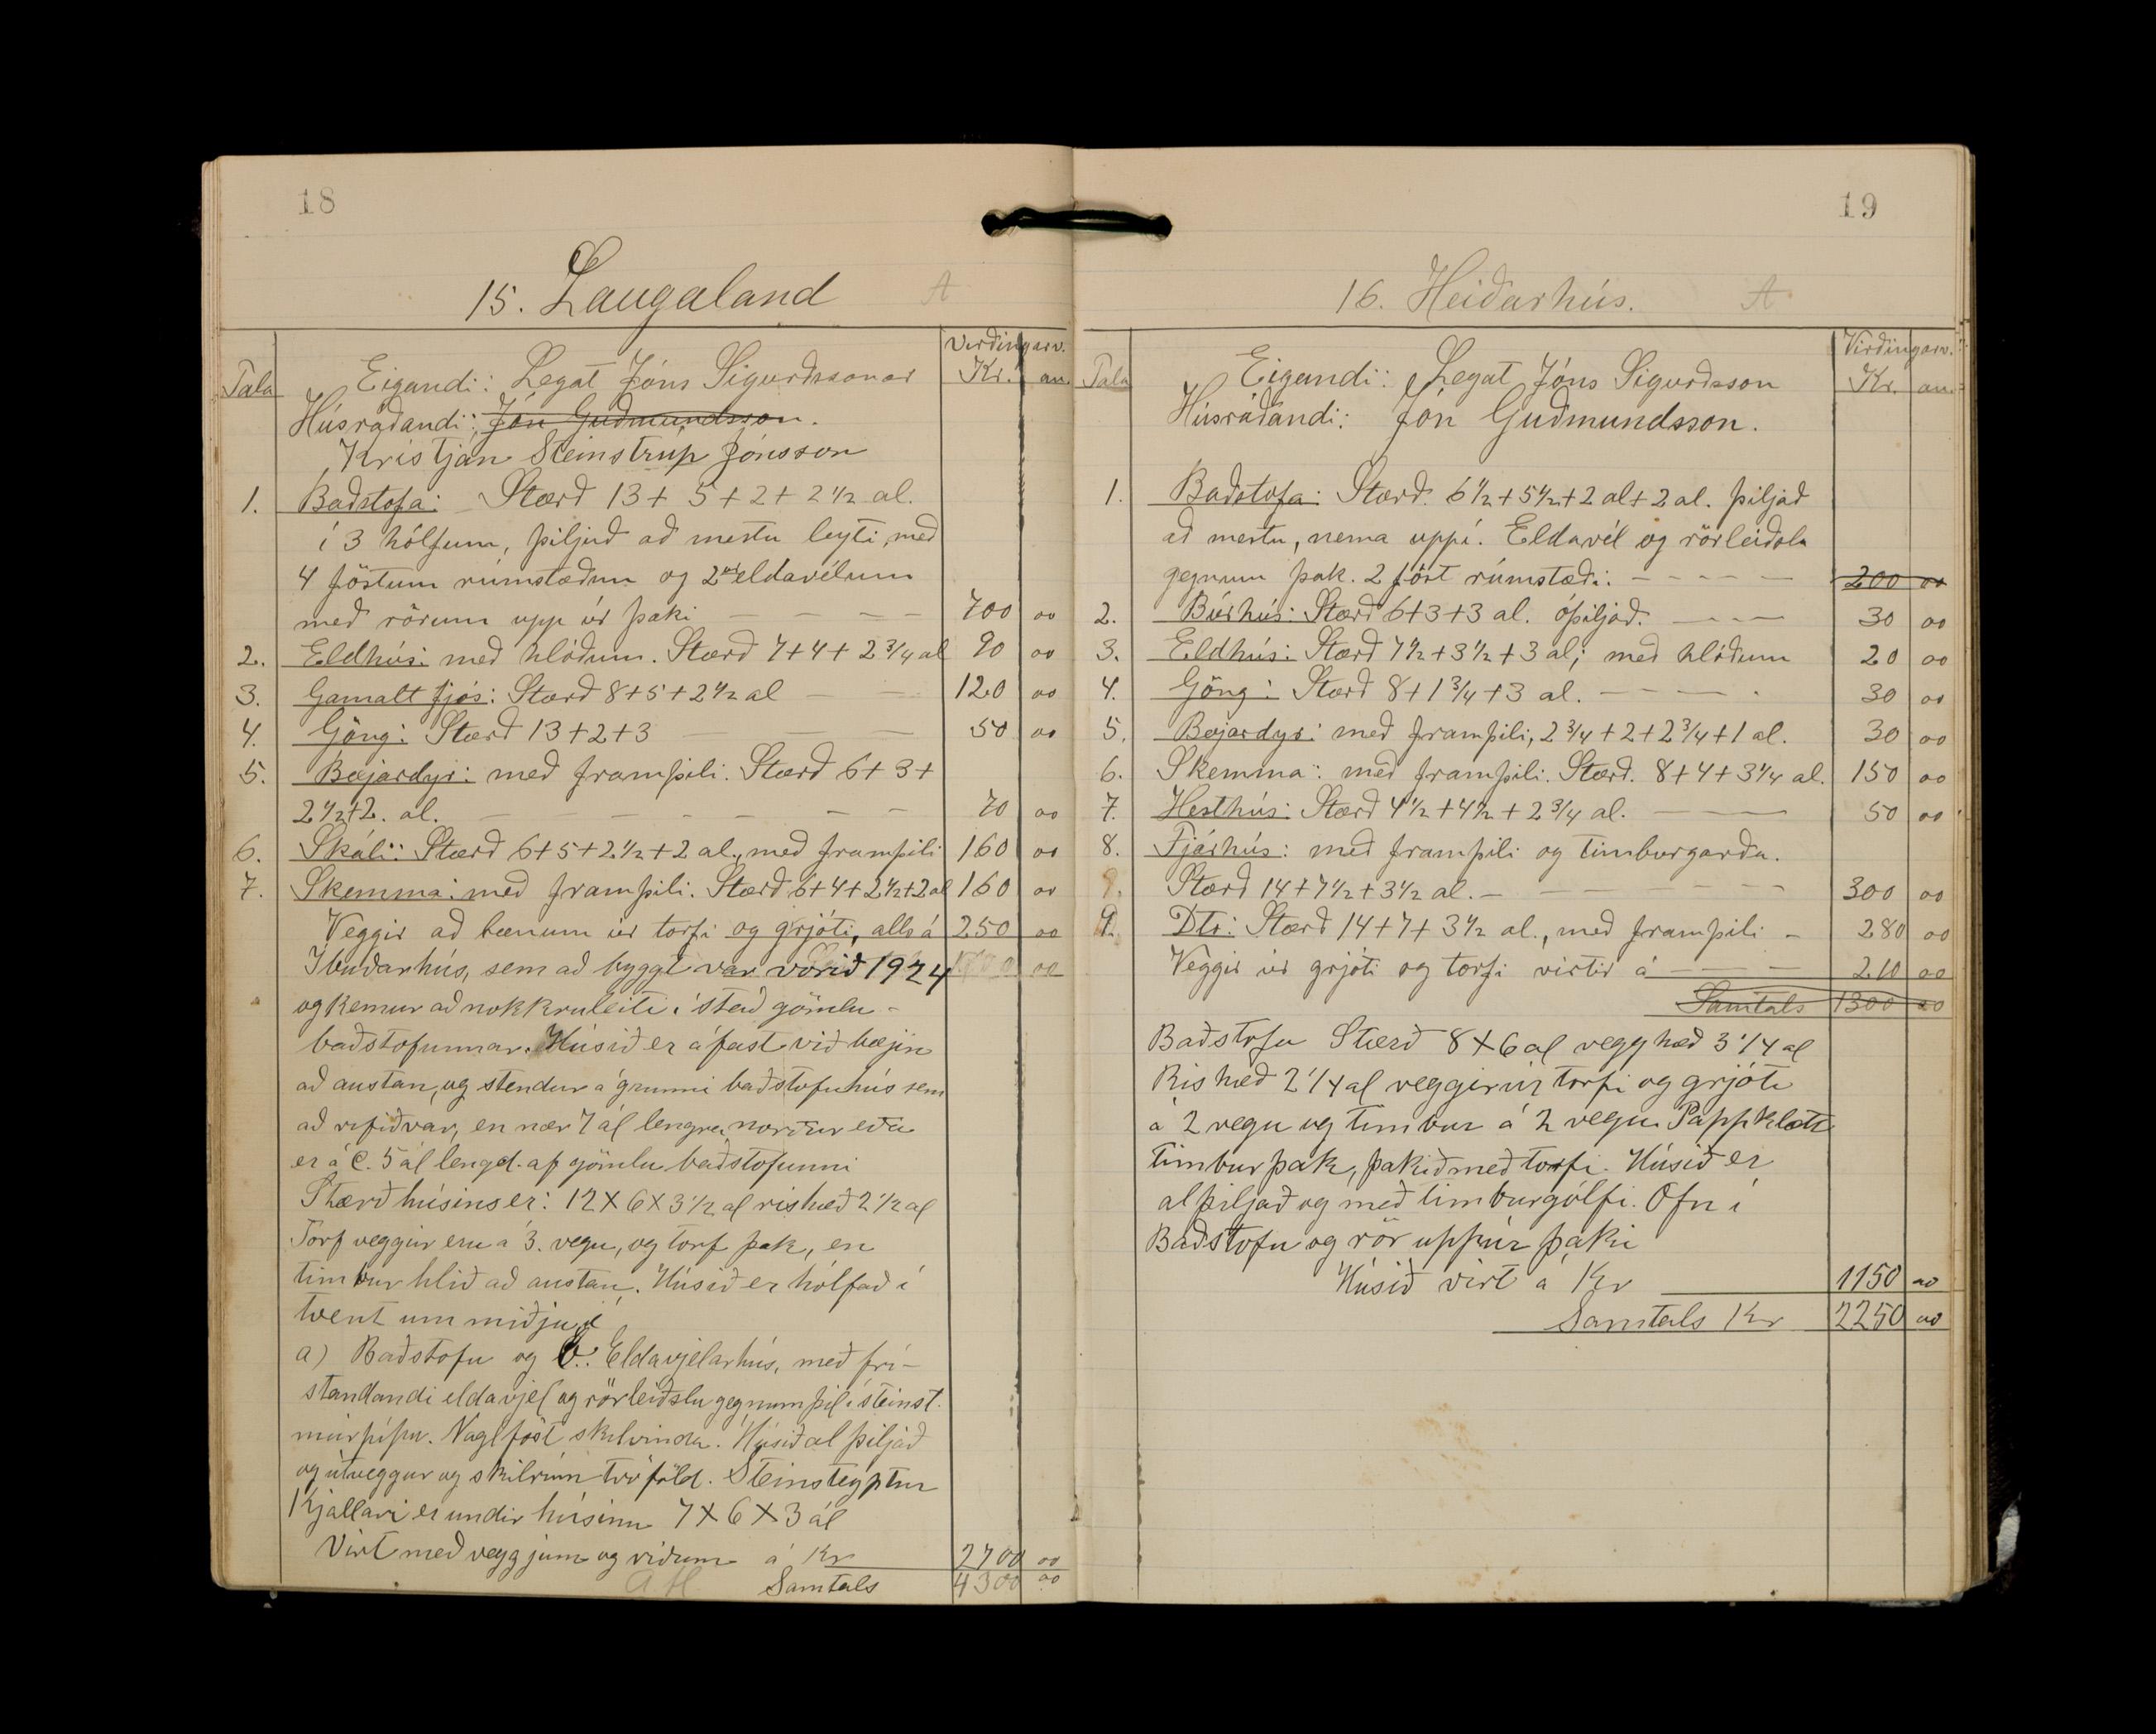 18
15. Laugaland A
Virðingarv.
Tala Eigandi: Legat Jóns Sigurðssonar Kr. au.
Húsráðandi: Jón Guðmundsson.
Kristján Steinstrúp Jónsson
1. Baðstofa: Stærð 13 + 5 + 2 + 2 1/2 al.
í 3 hólfum, þiljuð að mestu leyti, með
4 föstum rúmstæðum og 2 eldavélum
með rörum upp úr þaki — — — — 700 00
2. Eldhús: með hlóðum. Stærð 7 + 4 + 2 3/4 al 90 00
3. Gamalt fjós: Stærð 8 + 5 + 2 1/2 al — — 120 00
4. Göng: Stærð 13 + 2 + 3 — — — 50 00
5. Bæjardyr: með framþili. Stærð 6 + 3 +
2 1/2 + 2. al. — — — — — — — 70 00
6. Skáli: Stærð 6 + 5 + 2 1/2 + 2 al., með framþili 160 00
7. Skemma: með framþili. Stærð 6 + 4 + 2 1/2 + 2 al 160 00
Veggir að bænum úr torfi og grjóti, alls á 250 00
Ibúðarhús, sem að byggt var vorið 1924 00
og kemur að nokkruleiti í stað gömlu -
baðstofunnar. Húsið er áfast við bæjin
að austan, og stendur á grunni baðstofuhús sem
að rifið var, en nær 7 ál lengra norður eða
er á C. 5 ál lengd. af gömlu baðstofunni
Stærð húsins er: 12 X 6 X 3 1/2 al rishæð 2 1/2 al
Torf veggir eru á 3. vegu, og torf þak, en
timbur hlið að austan. Húsið er hólfað í
tvent um miðju í
a) Baðstofu og b. Eldavjelarhús, með frí-
standandi eldavjel og rörleiðslu gegnum þil í steinst.
múrpípu. Naglföst skilvinda. Húsið al þiljað
og útveggur og skilrúm tvöföld. Steinsteyptur
Kjallari er undir húsinu 7 X 6 X 3 ál
Virt með veggjum og viðum á Kr 2700 00
Samtals 4300 00
19
16. Heiðarhús. A
Virðingarv.
Tala Eigandi: Legat Jóns Sigurðsson Kr. au.
Húsráðandi: Jón Guðmundsson.
1. Baðstofa: Stærð. 6 1/2 + 5 1/2 + 2 al + 2 al. þiljað
að mestu, nema uppí. Eldavél og rörleiðsla
gegnum þak. 2 föst rúmstæði: — — — — — 200 00
2. Búrhús: Stærð 6 + 3 + 3 al. óþiljað. — — — 30 00
3. Eldhús: Stærð 7 1/2 + 3 1/2 + 3 al; með hlóðum 20 00
4. Göng: Stærð 8 + 1 3/4 + 3 al. — — — — 30 00
5. Bæjardyr: með framþili, 2 3/4 + 2 + 2 3/4 + 1 al. 30 00
6. Skemma: með framþili. Stærð. 8 + 4 + 3 1/4 al. 150 00
7. Hesthús: Stærð 4 1/2 + 4 1/2 + 2 3/4 al. — — 50 00
8. Fjárhús: með framþili og timburgarða.
9. Stærð 14 + 7 1/2 + 3 1/2 al. — — — — — — 300 00
9. Dto: Stærð 14 + 7 + 3 1/2 al., með framþili — 280 00
Veggir úr grjóti og torfi virtir á — — — 210 00
Samtals 1300 00
Baðstofu Stærð 8 X 6 al vegghæð 3 1/4 al
Rishæð 2 1/4 al veggir úr torfi og grjóti
á 2 vegu og timbur á 2 vegu. Pappklætt
timburþak, þakið með torfi. Húsið er
alþiljað og með timburgólfi. Ofn í
Baðstofu og rör uppúr þaki
Húsið virt á Kr 1150 00
Samtals Kr 2250 00